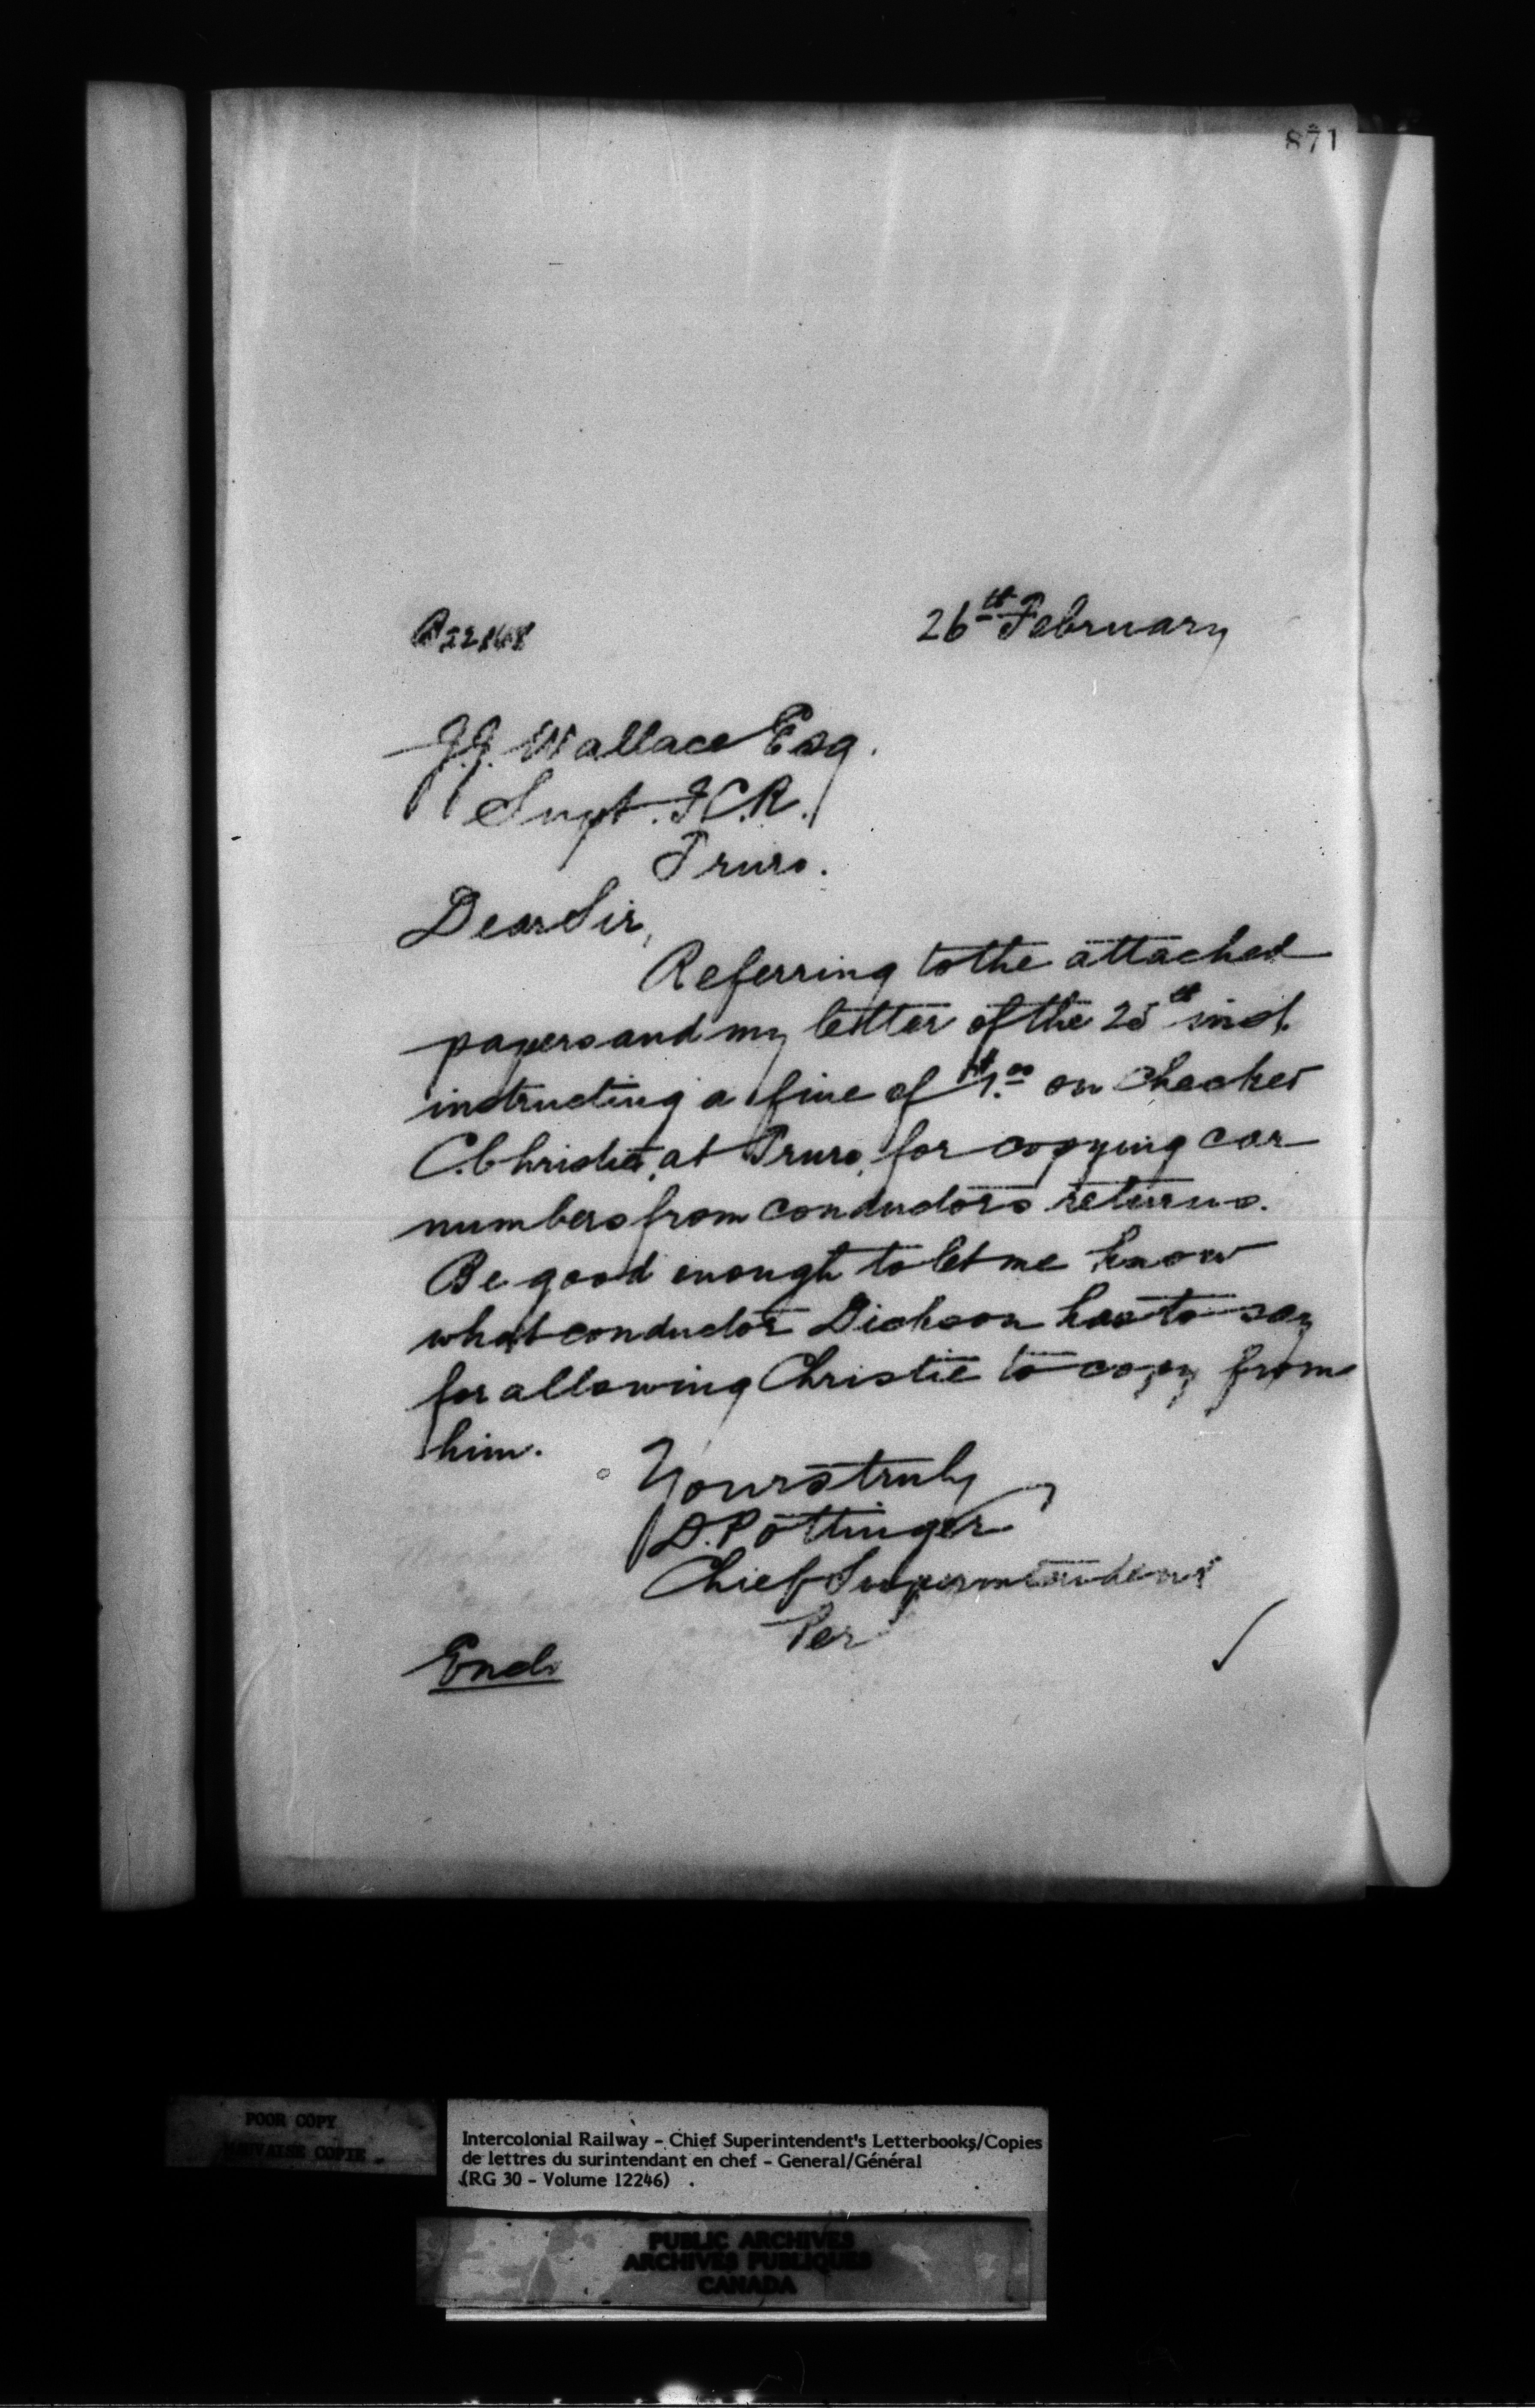 871
26th February
J.J. Wallace Esq.
Supt. I.C.R.
Truro.
Dear Sir,
Referring to the attached
papers and my letter of the 25th inst.
instructing a fine of $1.00 on Checker
C. Christie, at Truro, for copying car
numbers from conductors returns.
Be good enough to let me know
what conductor Dickson has to say
for allowing Christie to copy from
him.
Yours truly
D. Pottinger
Chief Superintendent
Per
Encl.
POOR COPY
MAUVAISE COPIE
Intercolonial Railway - Chief Superintendent's Letterbooks/Copies
de lettres du surintendant en chef - General/Général
(RG 30 - Volume 12246)
PUBLIC ARCHIVES
ARCHIVES PUBLIQUES
CANADA